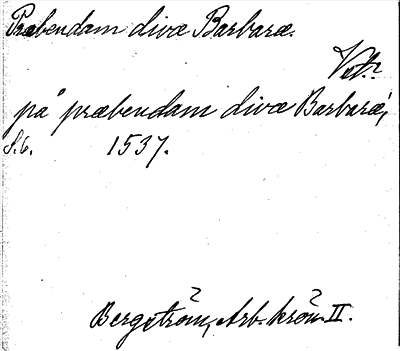 Præbendam divæ Barbaræ.
på præbendam divæ Barbaræ,
S. 6. 1537.
Bergström, Arb. krön. II.